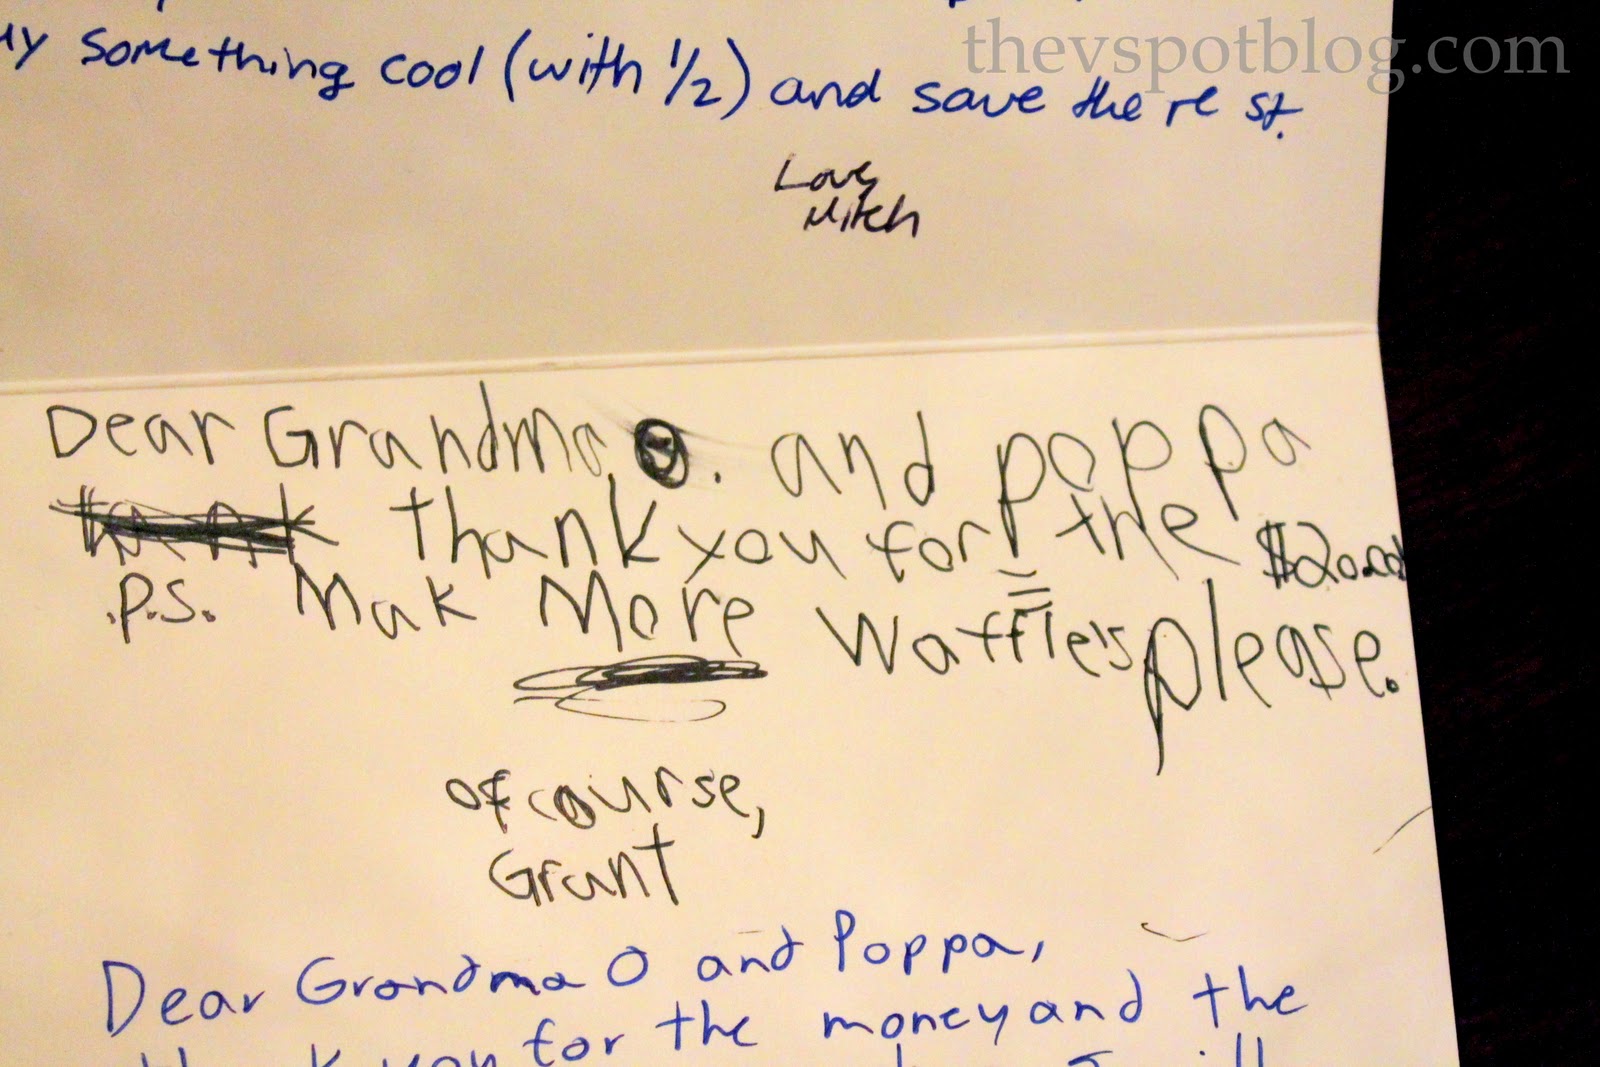 thevspotblog.com
something cool (with 1/2) and save the rest.
Love,
Mitch
Dear Grandma O. and poppa
thank you for the $20.00
P.S. Mak More Waffle's please.
of course,
Grant
Dear Grandma O and Poppa,
thank you for the money and the
I will